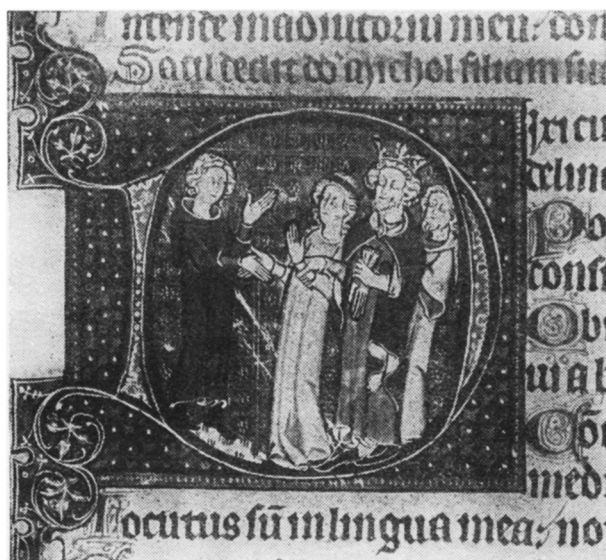 Intende in adiutoriū meū: dom
Saul dedit dd mychol filiam su
Dixi cu
delin
Po
consi
Ob
ui a b
Con
med
Locutus sū in lingua mea: no